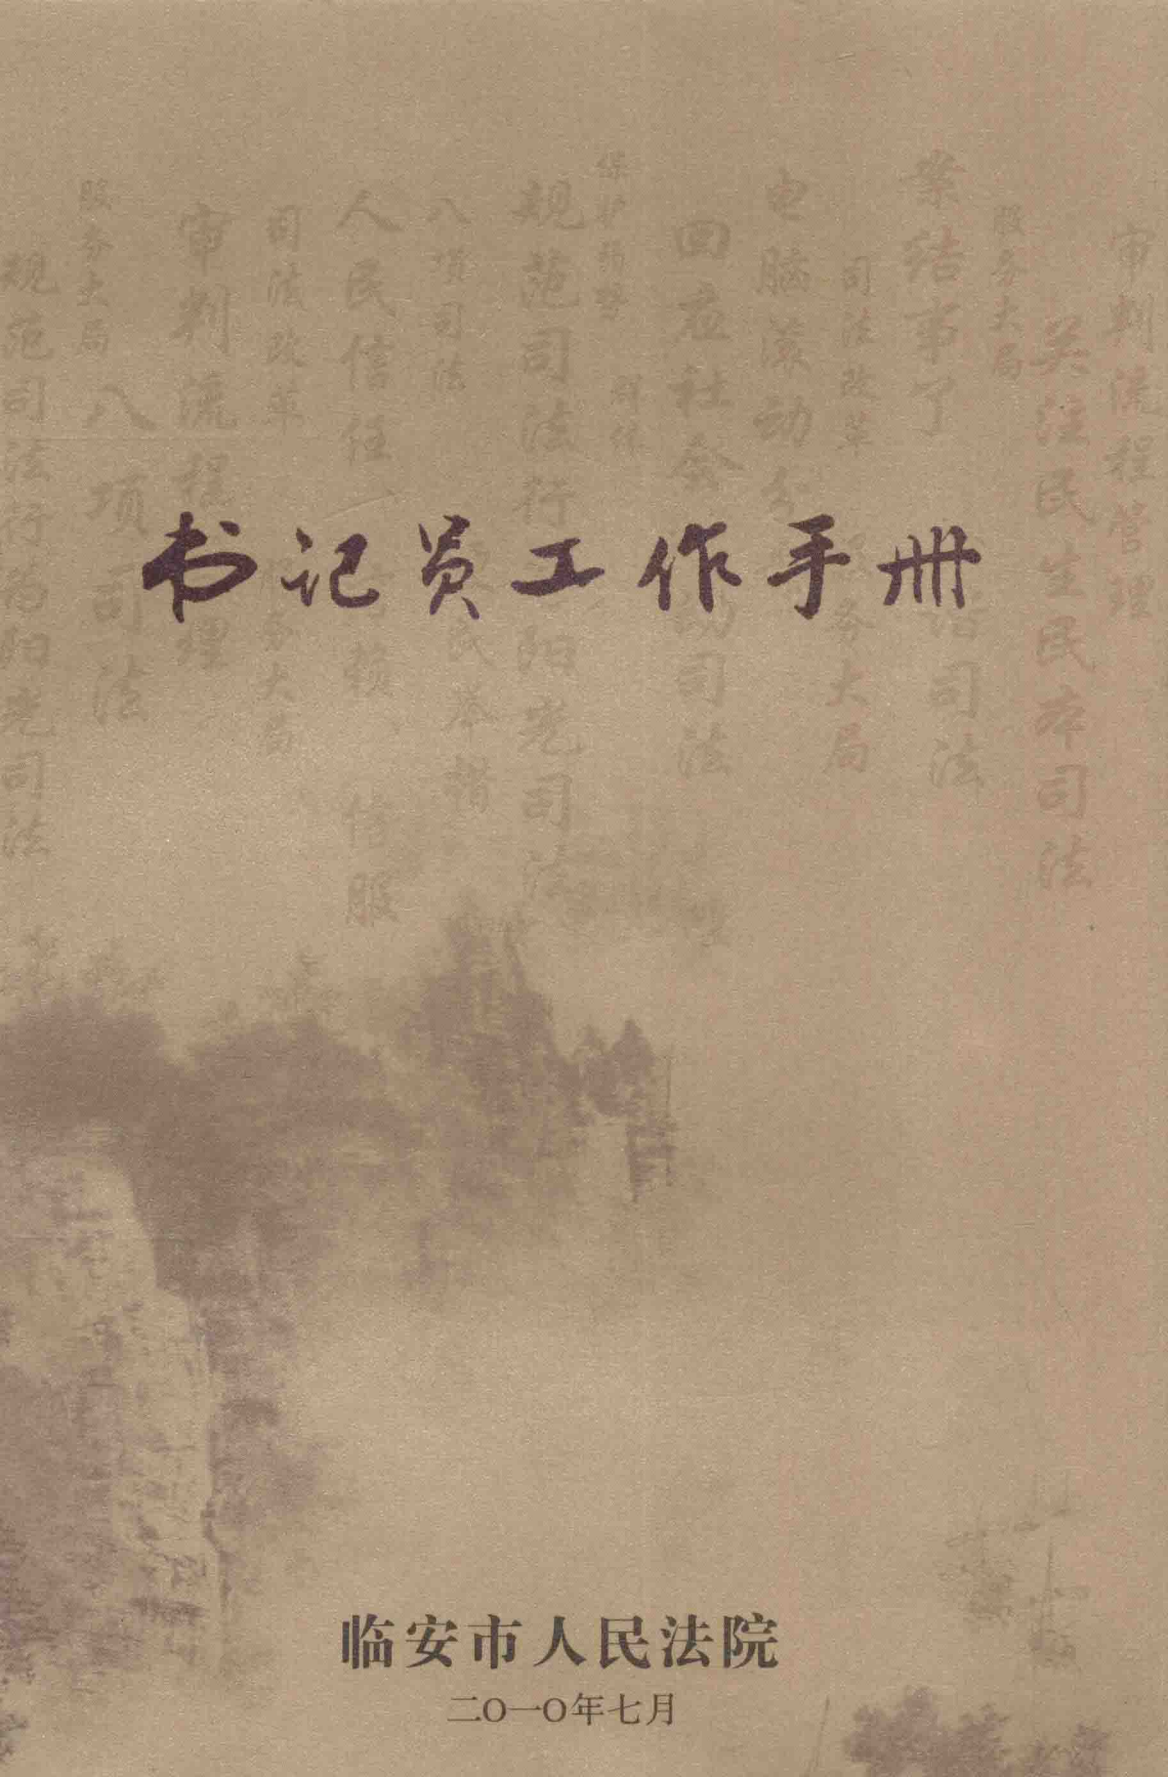 审判流程管理
关注民生民本司法
服务大局
案结事了
司法
司法改革
务大局
电脑滚动分
回应社会
司法
保护弱势
群体
规范司法行
阳光司法
八项司法
民举措
人民信任
赖
信服
司法改革
务大局
审判流程
理
服务大局
八项司法
规范司法行为阳光司法
书记员工作手册
临安市人民法院
二〇一〇年七月